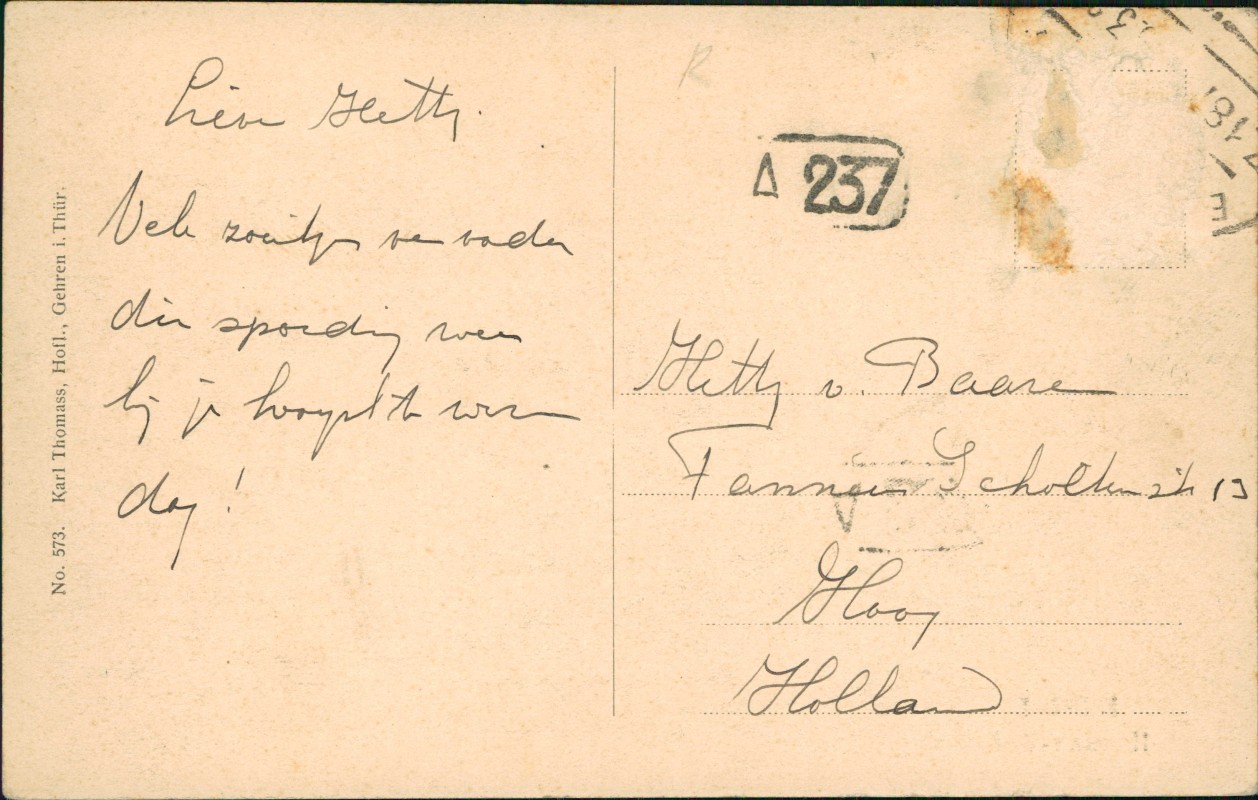 No. 573. Karl Thomass, Hofl., Gehren i. Thür.
Lieve Hetty.
Vele zoentjes van vader
die spoedig weer
bij je hoopt te wezen
dag!
R
Δ 237
Hetty v. Baaren
Fannius Scholtenstr 13
Haag
Holland